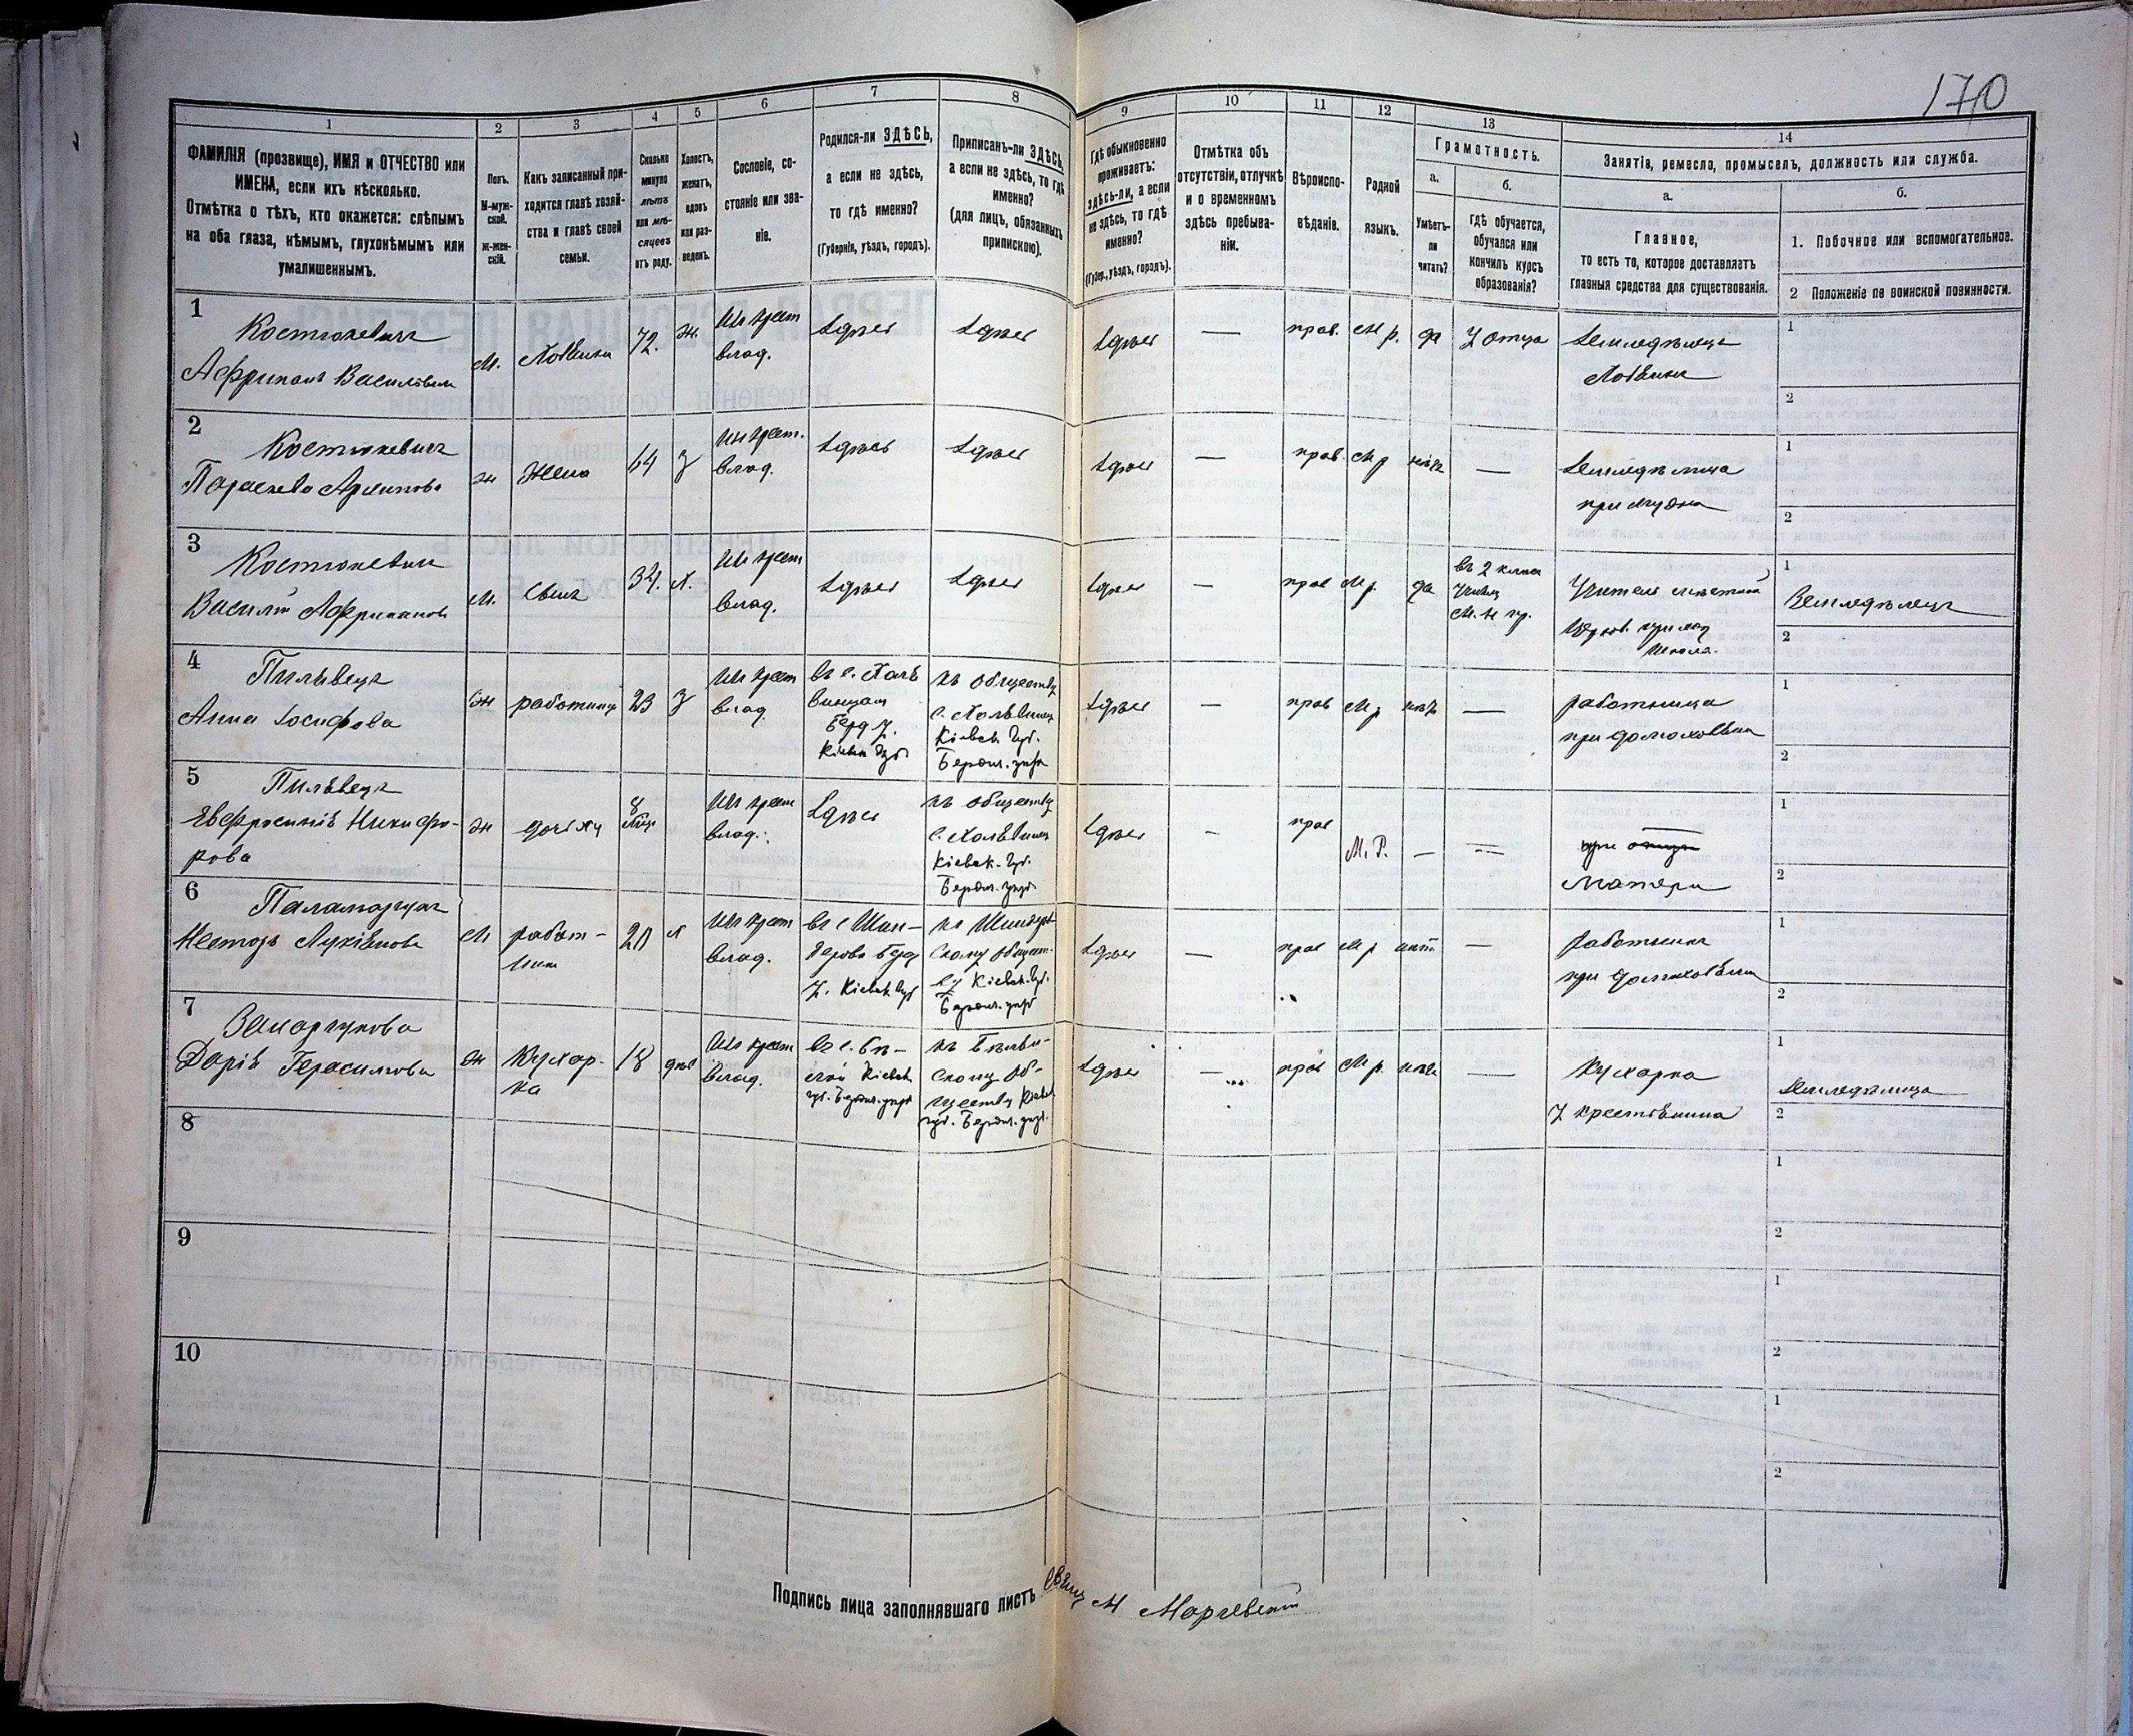 170
1
2
3
4
5
6
7
8
9
10
11
12
13
14
ФАМИЛІЯ (прозвище), ИМЯ и ОТЧЕСТВО или
ИМЕНА, если ихъ нѣсколько.
Отмѣтка о тѣхъ, кто окажется: слѣпымъ
на оба глаза, нѣмымъ, глухонѣмымъ или
умалишеннымъ.
Полъ.
М-муж-
ской.
ж-жен-
скій.
Какъ записанный при-
ходится главѣ хозяй-
ства и главѣ своей
семьи.
Сколько
минуло
лѣтъ
или мѣ-
сяцевъ
отъ роду.
Холостъ,
женатъ,
вдовъ
или раз-
веденъ.
Сословіе, со-
стояніе или зва-
ніе.
Родился-ли ЗДѢСЬ,
а если не здѣсь,
то гдѣ именно?
(Губернія, уѣздъ, городъ).
Приписанъ-ли ЗДѢСЬ,
а если не здѣсь, то гдѣ
именно?
(для лицъ, обязанныхъ
припискою).
Гдѣ обыкновенно
проживаетъ:
здѣсь-ли, а если
не здѣсь, то гдѣ
именно?
(Губер., уѣздъ, городъ).
Отмѣтка объ
отсутствіи, отлучкѣ
и о временномъ
здѣсь пребыва-
ніи.
Вѣроиспо-
вѣданіе.
Родной
языкъ.
Грамотность.
а.
Умѣетъ-
ли
читать?
б.
Гдѣ обучается,
обучался или
кончилъ курсъ
образованія?
Занятіе, ремесло, промыселъ, должность или служба.
а.
Главное,
то есть то, которое доставляетъ
главныя средства для существованія.
б.
1. Побочное или вспомогательное.
2 Положеніе по воинской повинности.
1
Костюкевичъ
Африканъ Василовичъ
М.
Хозяинъ
72.
ж.
Изъ крест
влад.
Здѣсь
Здѣсь
Здѣсь
—
прав.
М р.
да
У отца
Земледѣлецъ
Хозяинъ
1
2
2
Костюкевичъ
Параскева
ж
Жена
64
з
Изъ крест.
влад.
Здѣсь
Здѣсь
Здѣсь
—
прав
М р
нѣтъ
—
Земледѣлица
при мужѣ
1
2
3
Костюкевичъ
Василій Африкановъ
М.
Сынъ
34.
х.
Изъ крест
влад.
Здѣсь
Здѣсь
Здѣсь
—
прав
М р.
да
въ 2 класс
Училищ
М. Н пр.
Учитель
школа.
1
Земледѣлецъ
2
4
Пильвецъ
Анна Іосифова
ж
работница
23
з
Изъ крест
влад.
въ с.
Берд у.
Кіевск губ.
къ обществу
с.
Кіевск. Губ.
Бердич. уѣзд
Здѣсь
—
прав
М р
нѣтъ
—
работница
при домохозяинѣ
1
2
5
Пильвецъ
Евфросинія Никифо-
рова
ж
дочь ея
8
мѣс
Изъ крест
влад.
Здѣсь
къ обществу
с.
Кіевск. Губ.
Бердич. уѣзд
Здѣсь
—
прав
М. Р.
—
—
при отцѣ
матери
1
2
6
Паламарчукъ
Несторъ Лукіановъ
М
работ-
никъ
20
х
Изъ крест
влад.
въ с Шан-
дерово Берд
У. Кіевск губ
къ
скому общест-
ву Кіевск. Губ.
Бердич. уѣзд
Здѣсь
—
прав
М р
нѣтъ
—
работникъ
при домохозяинѣ
1
2
7
Дарія Герасимова
ж
Кухар-
ка
18
Изъ крест
влад.
въ с. Бѣ-
лой Кіевск
губ. Бердич. уѣзд
къ Бѣлов-
скому об-
ществу Кіевск
губ. Бердич. уѣзд.
Здѣсь
—
прав
М р.
нѣтъ
—
Кухарка
У крестьянина
1
Земледѣлица
2
8
1
2
9
1
2
10
1
2
Подпись лица заполнявшаго листъ
М